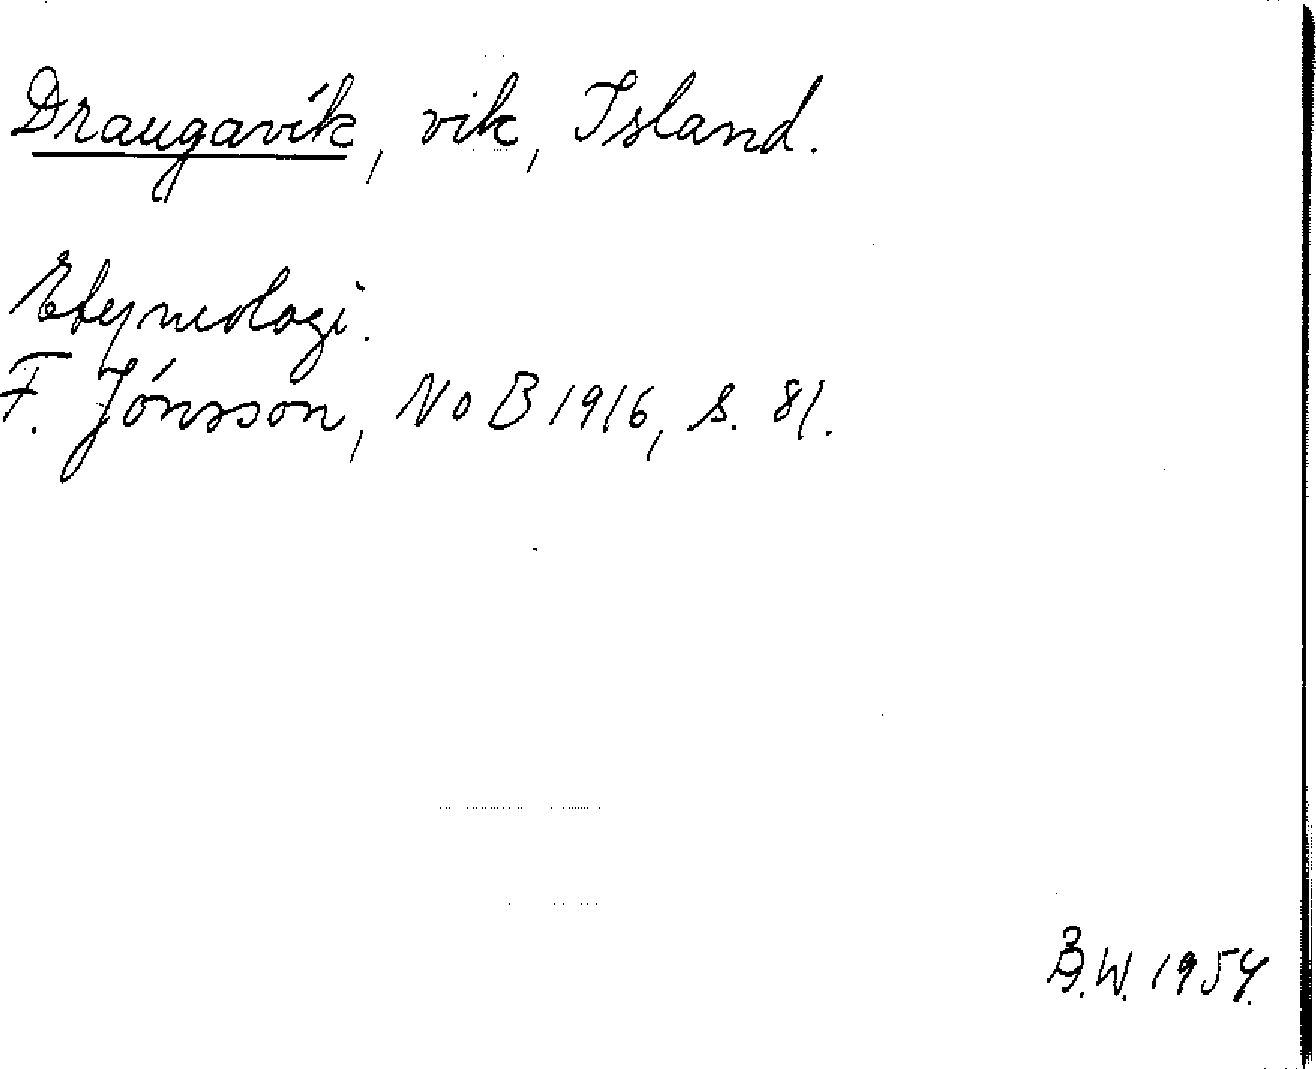 Draugavík, vik, Island.
Etymologi.
F. Jónsson, NoB 1916, s. 81.
B.W. 1954.